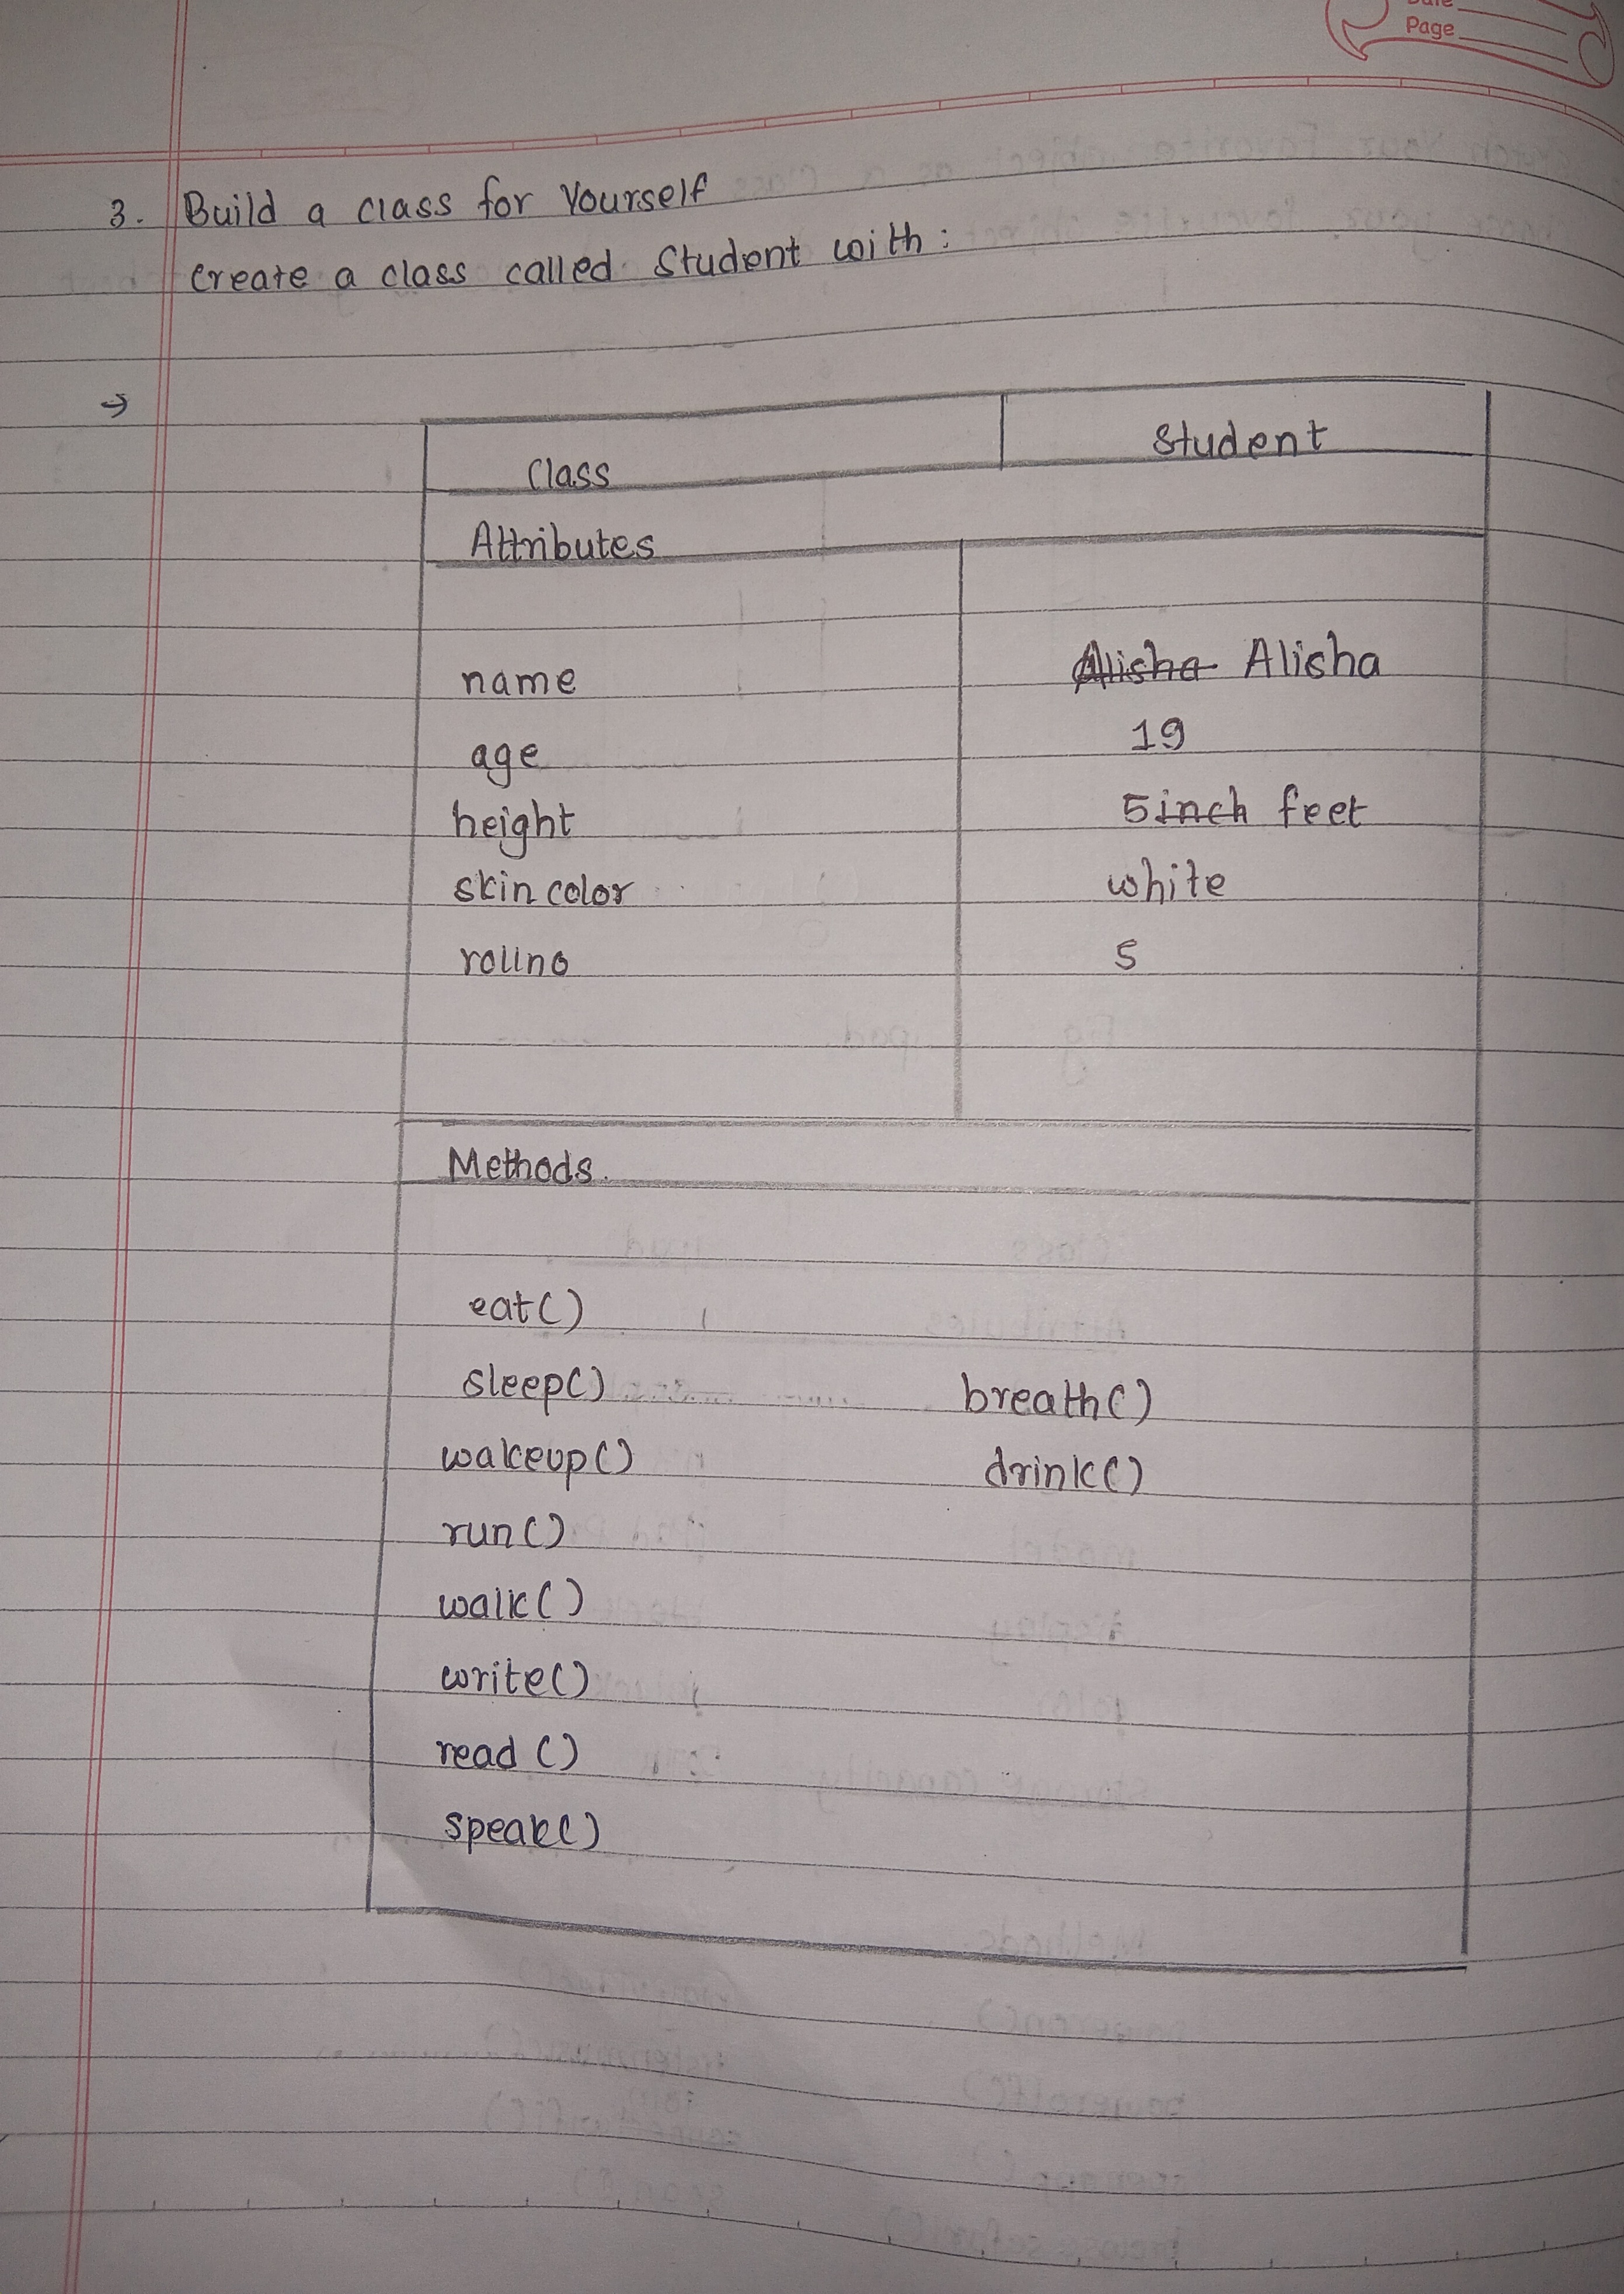 Date
Page
3. Build a class for Yourself
Create a class called Student with:
→
Class Student
Attributes
name Alisha Alisha
age 19
height 5 inch feet
skin color white
rollno 5
Methods.
eat()
sleep() breath()
wakeup() drink()
run()
walk()
write()
read ()
speak()